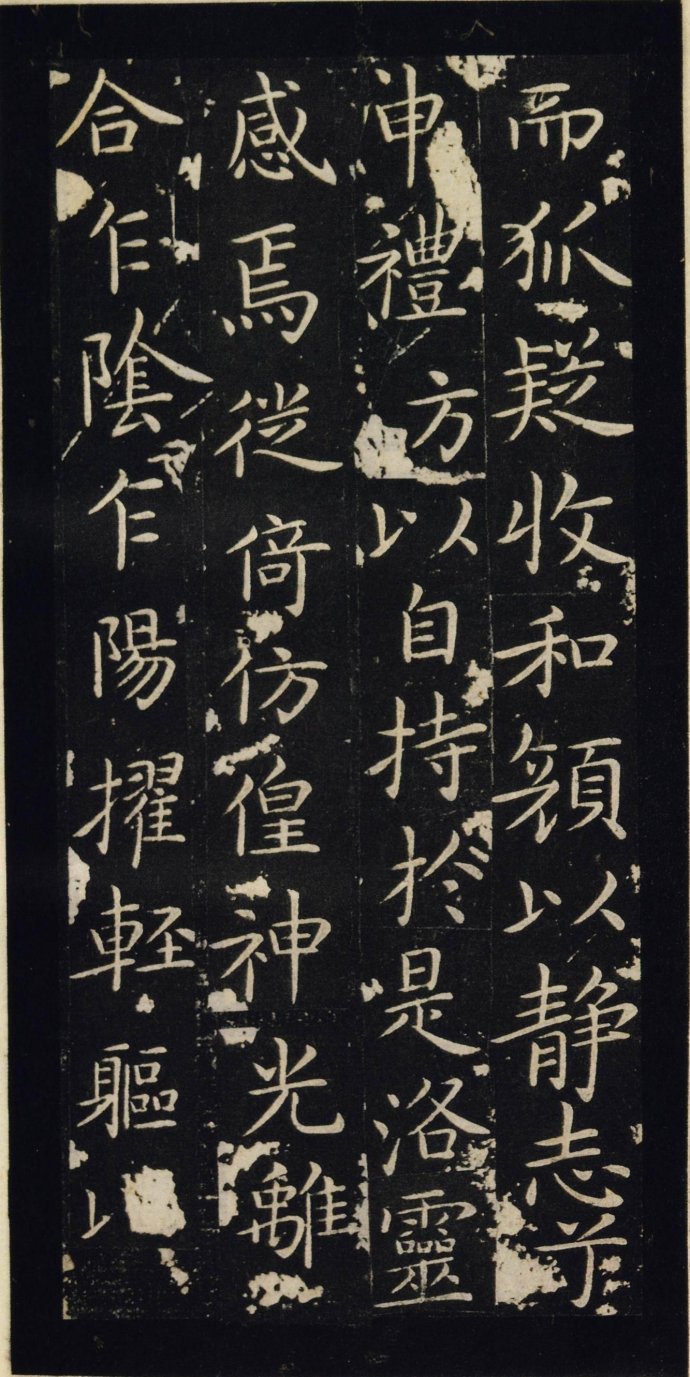 而狐疑收和顏以靜志兮
申禮方以自持於是洛靈
感焉徙倚仿偟神光離
合乍陰乍陽擢輕軀以